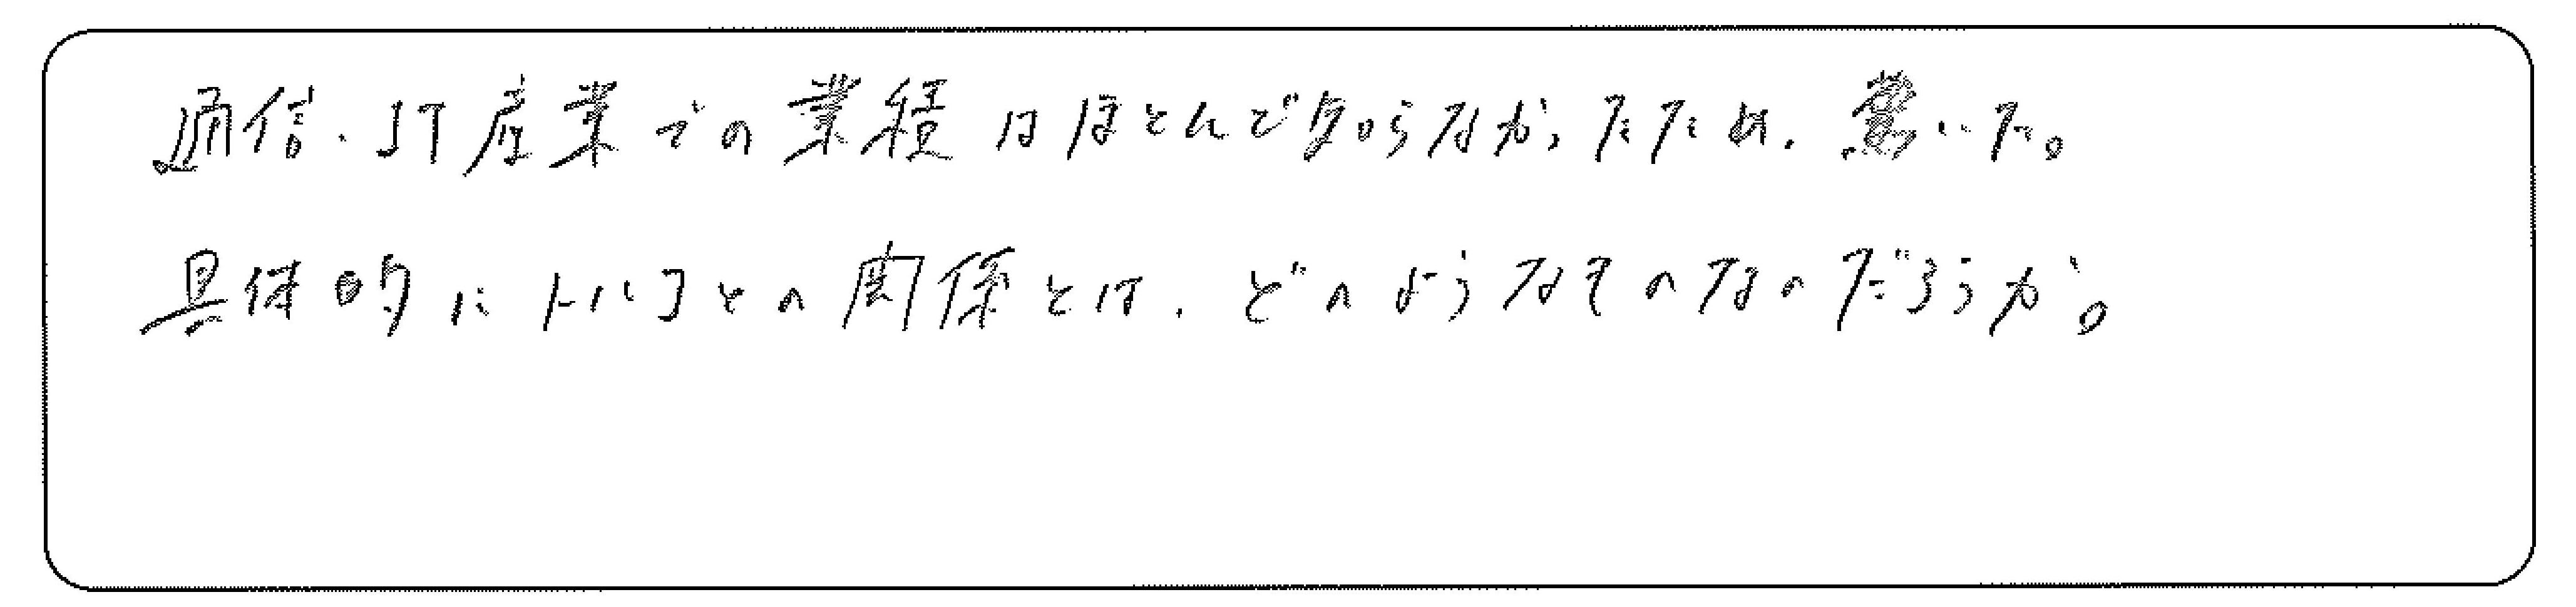 通信・IT産業での業績はほとんど知らなかったため、驚いた。
具体的にトルコとの関係とは、どのようなものなのだろうか。